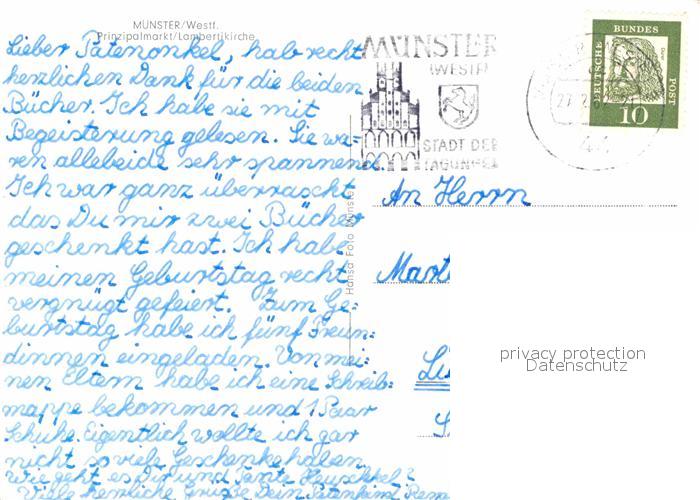 MÜNSTER/Westf.
Prinzipalmarkt/Lambertikirche
Lieber Patenonkel, hab recht
herzlichen Dank für die beiden
Bücher. Ich habe sie mit
Begeisterung gelesen. Sie wa-
ren allebeide sehr spannend.
Ich war ganz überrascht
das Du mir zwei Bücher
geschenkt hast. Ich habe
meinen Geburtstag recht
vergnügt gefeiert. Zum Ge-
burtstag habe ich fünf Freun-
dinnen eingeladen. Von mei-
nen Eltern habe ich eine Schreib-
mappe bekommen und 1 Paar
Schuhe. Eigentlich wollte ich gar
nicht so viele Geschenke haben.
Wie geht es Dir und Tante
Viele herzliche Grüße Dein Patenkind
Hansa Foto Münster
MÜNSTER
(WESTF)
STADT DER
TAGUNGEN
27.2.
44
DEUTSCHE
BUNDES
POST
10
An Herrn
privacy protection
Datenschutz